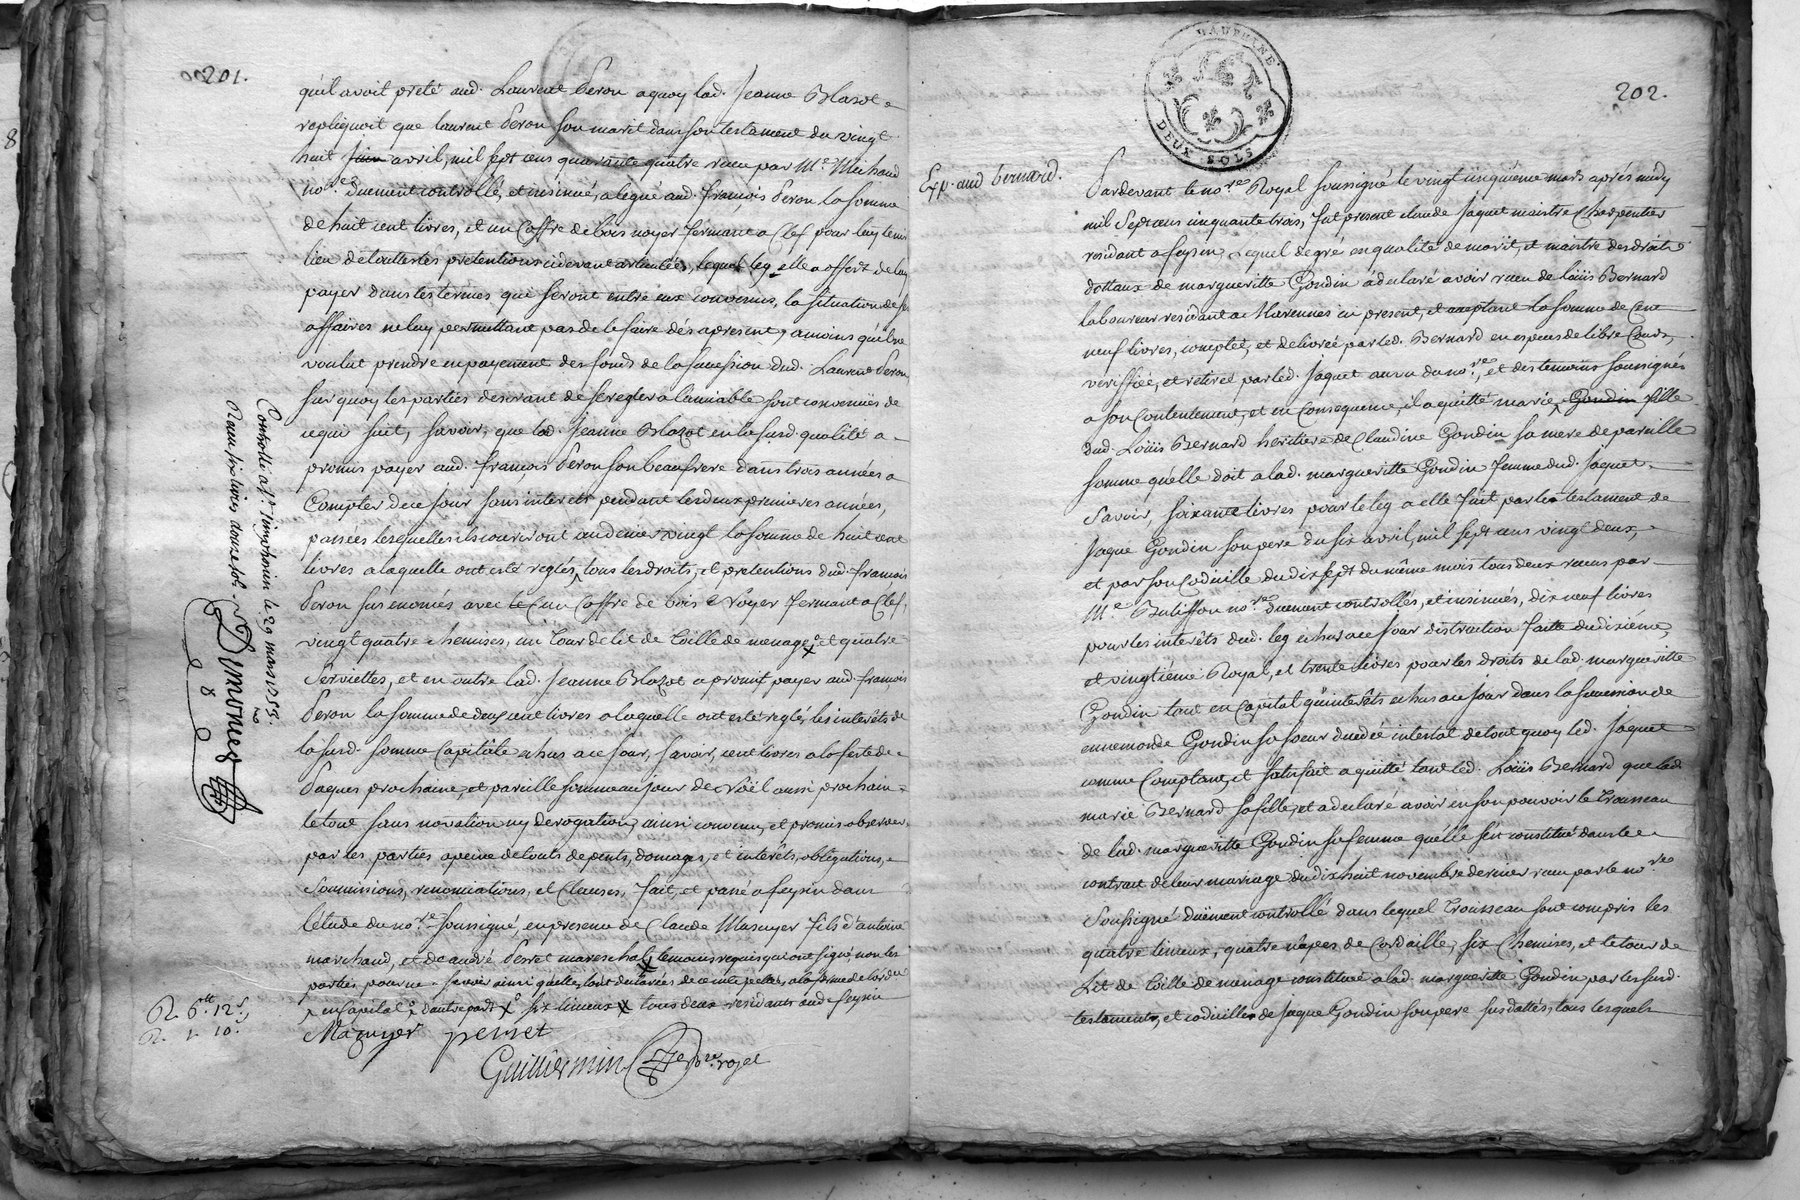 201.
qu'il avoit preté aud. Laurent Peron a quoy lad. Jeanne Blazot
repliquoit que laurent Peron son marit dans son testament du vingt
huit avril, mil sept cens quarante quatre receu par Me. Michaud
nore. duement controllé, et insinué, a legué aud. françois Peron la somme
de huit cent livres, et un Coffre de bois noyer fermant a Clef pour luy tenir
lieu de touttes les pretentions cidevant articulées, lequel leg elle a offert de luy
payer dans les termes qui seront entre eux convenus, la situation de ses
affaires ne luy permettant pas de le faire dés apresent, a moins qu'il ne
voulut prendre en payement des fonds de la succession dud. Laurent Peron
sur quoy les parties desirant de se regler a l'amiable sont convenües de
ce qui suit, savoir, que lad. Jeanne Blazot en la susd. qualité a
promis payer aud. françois Peron son beaufrere dans trois années a
Compter de ce jour sans interets pendant les deux premieres années,
passées lesquelles ils courront au denier vingt la somme de huit cent
livres a laquelle ont esté reglés tous les droits, et pretentions dud. francois
Peron sus énoncés avec un Coffre de bois Noyer fermant a Clef,
vingt quatre chemises, un tour de lit de toille de menage, et quatre
Serviettes, et en outre lad. Jeanne Blazot a promit payer aud. françois
Peron la somme de deux cent livres a laquelle ont esté reglés les interêts de
la susd. somme Capitale echus a ce jour, savoir, cent livres a la feste de
Paques prochaine, et pareille somme au jour de Noël aussi prochain
le tout sans novation ny derogation, ainsi convenu, et promis observer
par les parties a peine de touts depents, domages, et interêts, obligations,
Soumissions, renonciations, et Clauses, fait, et passé a feysin dans
l'étude du nore. soussigné, en presence de Claude Mazuyer fils d'antoine
marchand, et de andré Perret mareschal, temoins requis qui ont signé non les
parties pour ne savoir ainsi
en Capital d'autre part six linceux tous deux residants aud. feysin
Mazuyer perret
Guilliermin nore. royal
R. 6tt. 12s.
R. 1. 10s.
Controllé a St. simphorien le 29 mars 1753.
Reçu six livres douze sols.
202.
DAUPHINE
DEUX SOLS
Exp. aud bernard.
Pardevant le nore. Royal soussigné le vingt cinquiéme mars aprés midy
mil Sept cens cinquante trois, fut present claude Jaquet maitre Charpentier
residant a feysin, lequel de gré en qualité de marit, et maitre des droits
dottaux de margueritte Gondin a declaré avoir receu de loüis Bernard
laboureur residant a Marennes ici present, et acceptant la somme de Cent
neuf livres, comptée, et delivrée par led. Bernard en especes de libre Cours,
veriffiée, et retirée par led. Jaquet au vu du nore., et des temoins soussignés
a son Contentement, et en Consequence, il a quitté marie Gondin fille
dud. Loüis Bernard heritiere de Claudine Gondin sa mere de pareille
somme qu'elle doit a lad. margueritte Gondin femme dud. Jaquet
Savoir, soixante livres pour le leg a elle fait par le testament de
Jaque Gondin son pere du six avril, mil sept cens vingt deux,
et par son Codicille du dix sept du même mois tous deux receus par
Me. Balisson nore. duement controllés, et insinués, dix neuf livres
pour les interêts dud. leg echus a ce jour distraction faitte du dixiéme,
et vingtiéme Royal, et trente livres pour les droits de lad. margueritte
Gondin tant en Capital qu'interêts echus a ce jour dans la succession de
ennemonde Gondin sa soeur decedée intestat de tout quoy led. Jaquet
comme Comptant, et satisfait a quitté tant led. Loüis Bernard que lad.
marie Bernard sa fille, et a declaré avoir en son pouvoir le trousseau
de lad. margueritte Gondin sa femme qu'elle s'est constitué dans le
contract de leur mariage du dix huit novembre dernier receu par le nore.
Soussigné düement controllé dans lequel trousseau sont compris les
quatre linceux, quatre napes de Cordaille, six Chemises, et le tour de
Lit de toille de menage constitués a lad. margueritte Gondin par les susd.
testaments, et codicilles de Jaque Gondin son pere sus dattés, tous lesquels